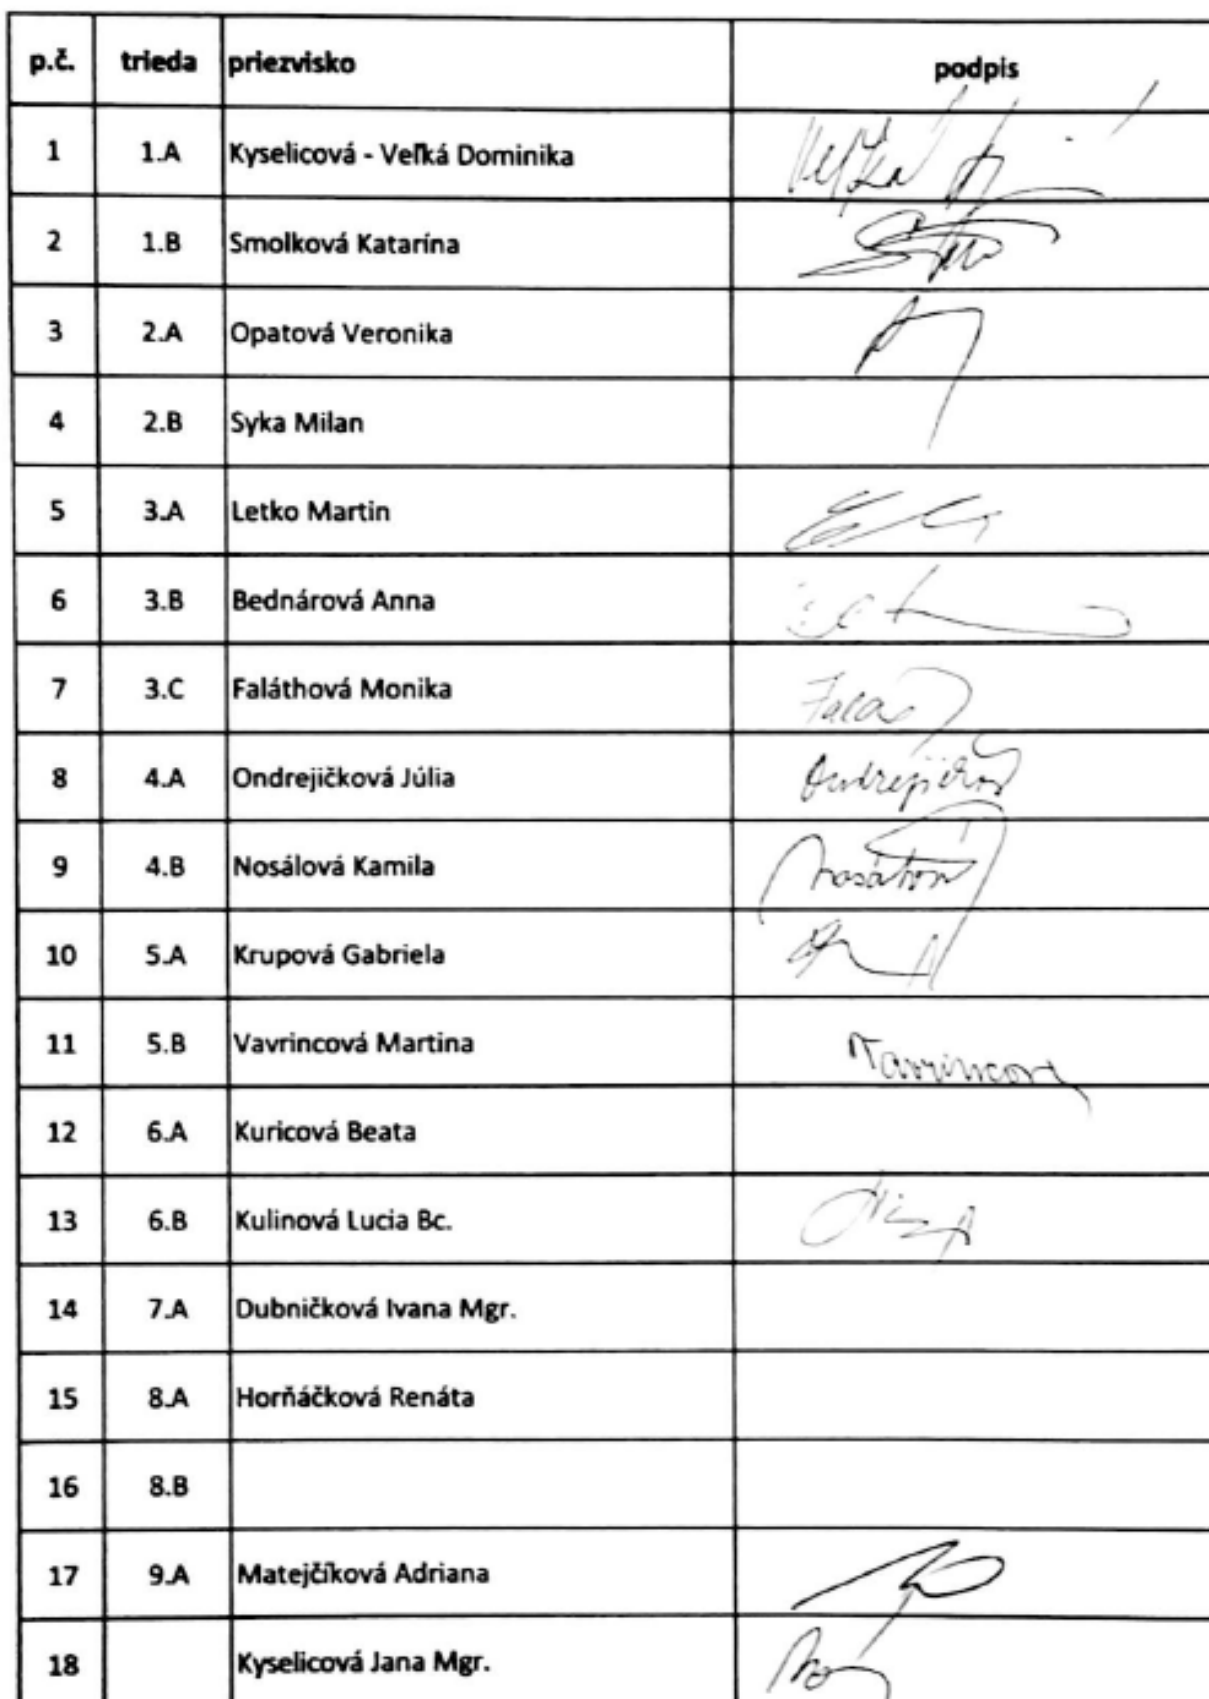 p.č. trieda priezvisko podpis
1 1.A Kyselicová - Veľká Dominika Veľká
2 1.B Smolková Katarína
3 2.A Opatová Veronika
4 2.B Syka Milan
5 3.A Letko Martin
6 3.B Bednárová Anna
7 3.C Faláthová Monika
8 4.A Ondrejičková Júlia
9 4.B Nosálová Kamila
10 5.A Krupová Gabriela
11 5.B Vavrincová Martina
12 6.A Kuricová Beata
13 6.B Kulinová Lucia Bc.
14 7.A Dubničková Ivana Mgr.
15 8.A Horňáčková Renáta
16 8.B
17 9.A Matejčíková Adriana
18 Kyselicová Jana Mgr.